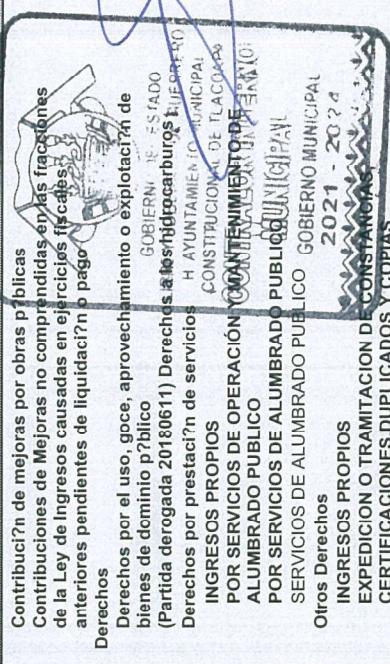 Contribuci?n de mejoras por obras p?blicas
Contribuciones de Mejoras no comprendidas en las fracciones
de la Ley de Ingresos causadas en ejercicios fiscales
anteriores pendientes de liquidaci?n o pago
Derechos
Derechos por el uso, goce, aprovechamiento o explotaci?n de
bienes de dominio p?blico
(Partida derogada 20180611) Derechos a los hidrocarburos
Derechos por prestaci?n de servicios
INGRESOS PROPIOS
POR SERVICIOS DE OPERACIÓN Y MANTENIMIENTO DE
ALUMBRADO PUBLICO
POR SERVICIOS DE ALUMBRADO PUBLICO
SERVICIOS DE ALUMBRADO PUBLICO
Otros Derechos
INGRESOS PROPIOS
EXPEDICION O TRAMITACION DE CONSTANCIAS,
CERTIFICACIONES, DUPLICADOS Y COPIAS
GOBIERNO DE ESTADO
GUERRERO
H AYUNTAMIENTO MUNICIPAL
CONSTITUCIONAL DE
MUNICIPAL
GOBIERNO MUNICIPAL
2021 - 2024